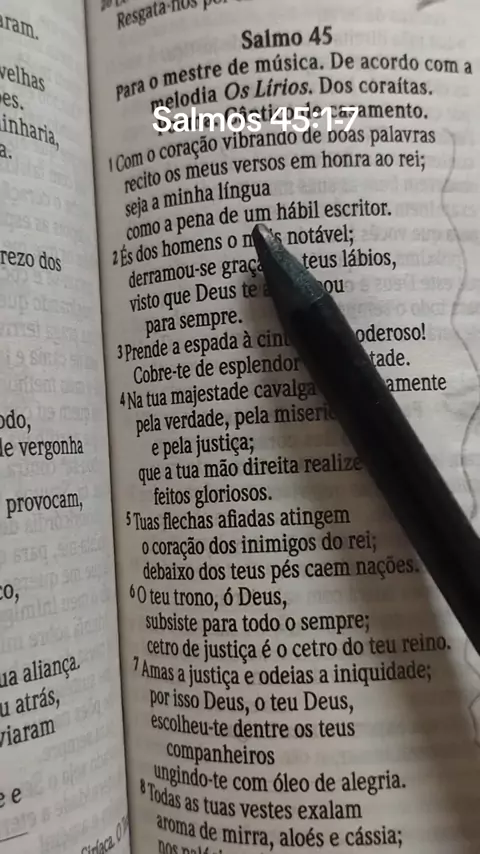 aram.
velhas
ões.
inharia,
a.
rezo dos
odo,
de vergonha
provocam,
co,
ua aliança.
u atrás,
viaram
e e
Resgata-nos por
Salmo 45
Para o mestre de música. De acordo com a
melodia Os Lírios. Dos coraítas.
Cântico de casamento.
Salmos 45:1-7
1 Com o coração vibrando de boas palavras
recito os meus versos em honra ao rei;
seja a minha língua
como a pena de um hábil escritor.
2 És dos homens o mais notável;
derramou-se graça teus lábios,
visto que Deus te
para sempre.
3 Prende a espada à oderoso!
Cobre-te de esplendor tade.
4 Na tua majestade cavalga amente
pela verdade, pela
e pela justiça;
que a tua mão direita realize
feitos gloriosos.
5 Tuas flechas afiadas atingem
o coração dos inimigos do rei;
debaixo dos teus pés caem nações.
6 O teu trono, ó Deus,
subsiste para todo o sempre;
cetro de justiça é o cetro do teu reino.
7 Amas a justiça e odeias a iniquidade;
por isso Deus, o teu Deus,
escolheu-te dentre os teus
companheiros
ungindo-te com óleo de alegria.
8 Todas as tuas vestes exalam
aroma de mirra, aloés e cássia;